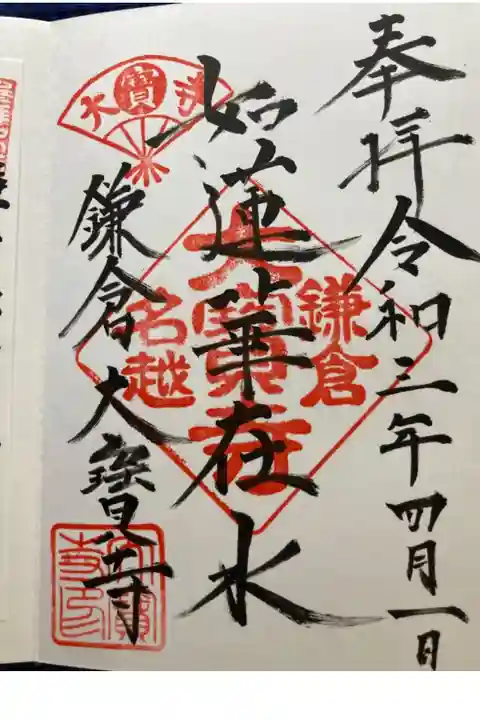 奉拝令和三年四月一日
如蓮華在水
鎌倉大寳寺
鎌倉
大寶寺
名越
大寶寺